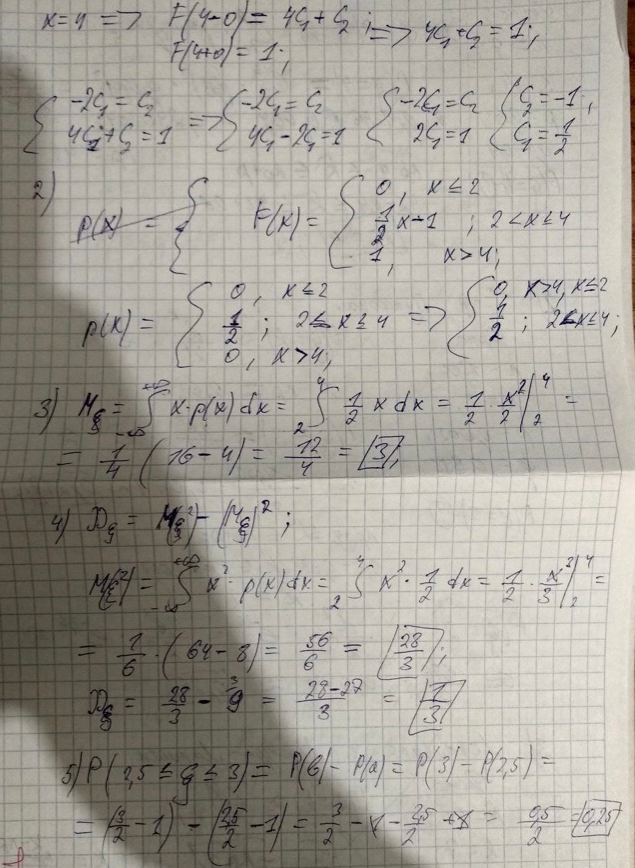 x=4 => F(4-0) = 4C₁ + C₂ ; => 4C₁ + C₂ = 1;
F(4+0) = 1;
{ -2C₁ = C₂ => { -2C₁ = C₂ { -2C₁ = C₂ { C₂ = -1;
4C₁ + C₂ = 1 4C₁ - 2C₁ = 1 2C₁ = 1 C₁ = 1/2
2)
p(x) = { F(x) = { 0, x ≤ 2
1/2 x - 1 ; 2 < x ≤ 4
1, x > 4;
p(x) = { 0, x ≤ 2 => { 0, x > 4, x ≤ 2
1/2 ; 2 < x ≤ 4 1/2 ; 2 < x ≤ 4;
0, x > 4;
3) Mξ = ∫_{-∞}^{+∞} x · p(x) dx = ∫_2^4 1/2 x dx = 1/2 · x²/2 |_2^4 =
= 1/4 (16 - 4) = 12/4 = 3;
4) Dξ = M(ξ²) - (Mξ)² ;
M(ξ²) = ∫_{-∞}^{+∞} x² · p(x) dx = ∫_2^4 x² · 1/2 dx = 1/2 · x³/3 |_2^4 =
= 1/6 · (64 - 8) = 56/6 = 28/3 ;
Dξ = 28/3 - 9 = 28-27/3 = 1/3
5) P(2,5 ≤ ξ ≤ 3) = P(b) - P(a) = P(3) - P(2,5) =
= (3/2 - 1) - (2,5/2 - 1) = 3/2 - 1 - 2,5/2 + 1 = 0,5/2 = 0,25